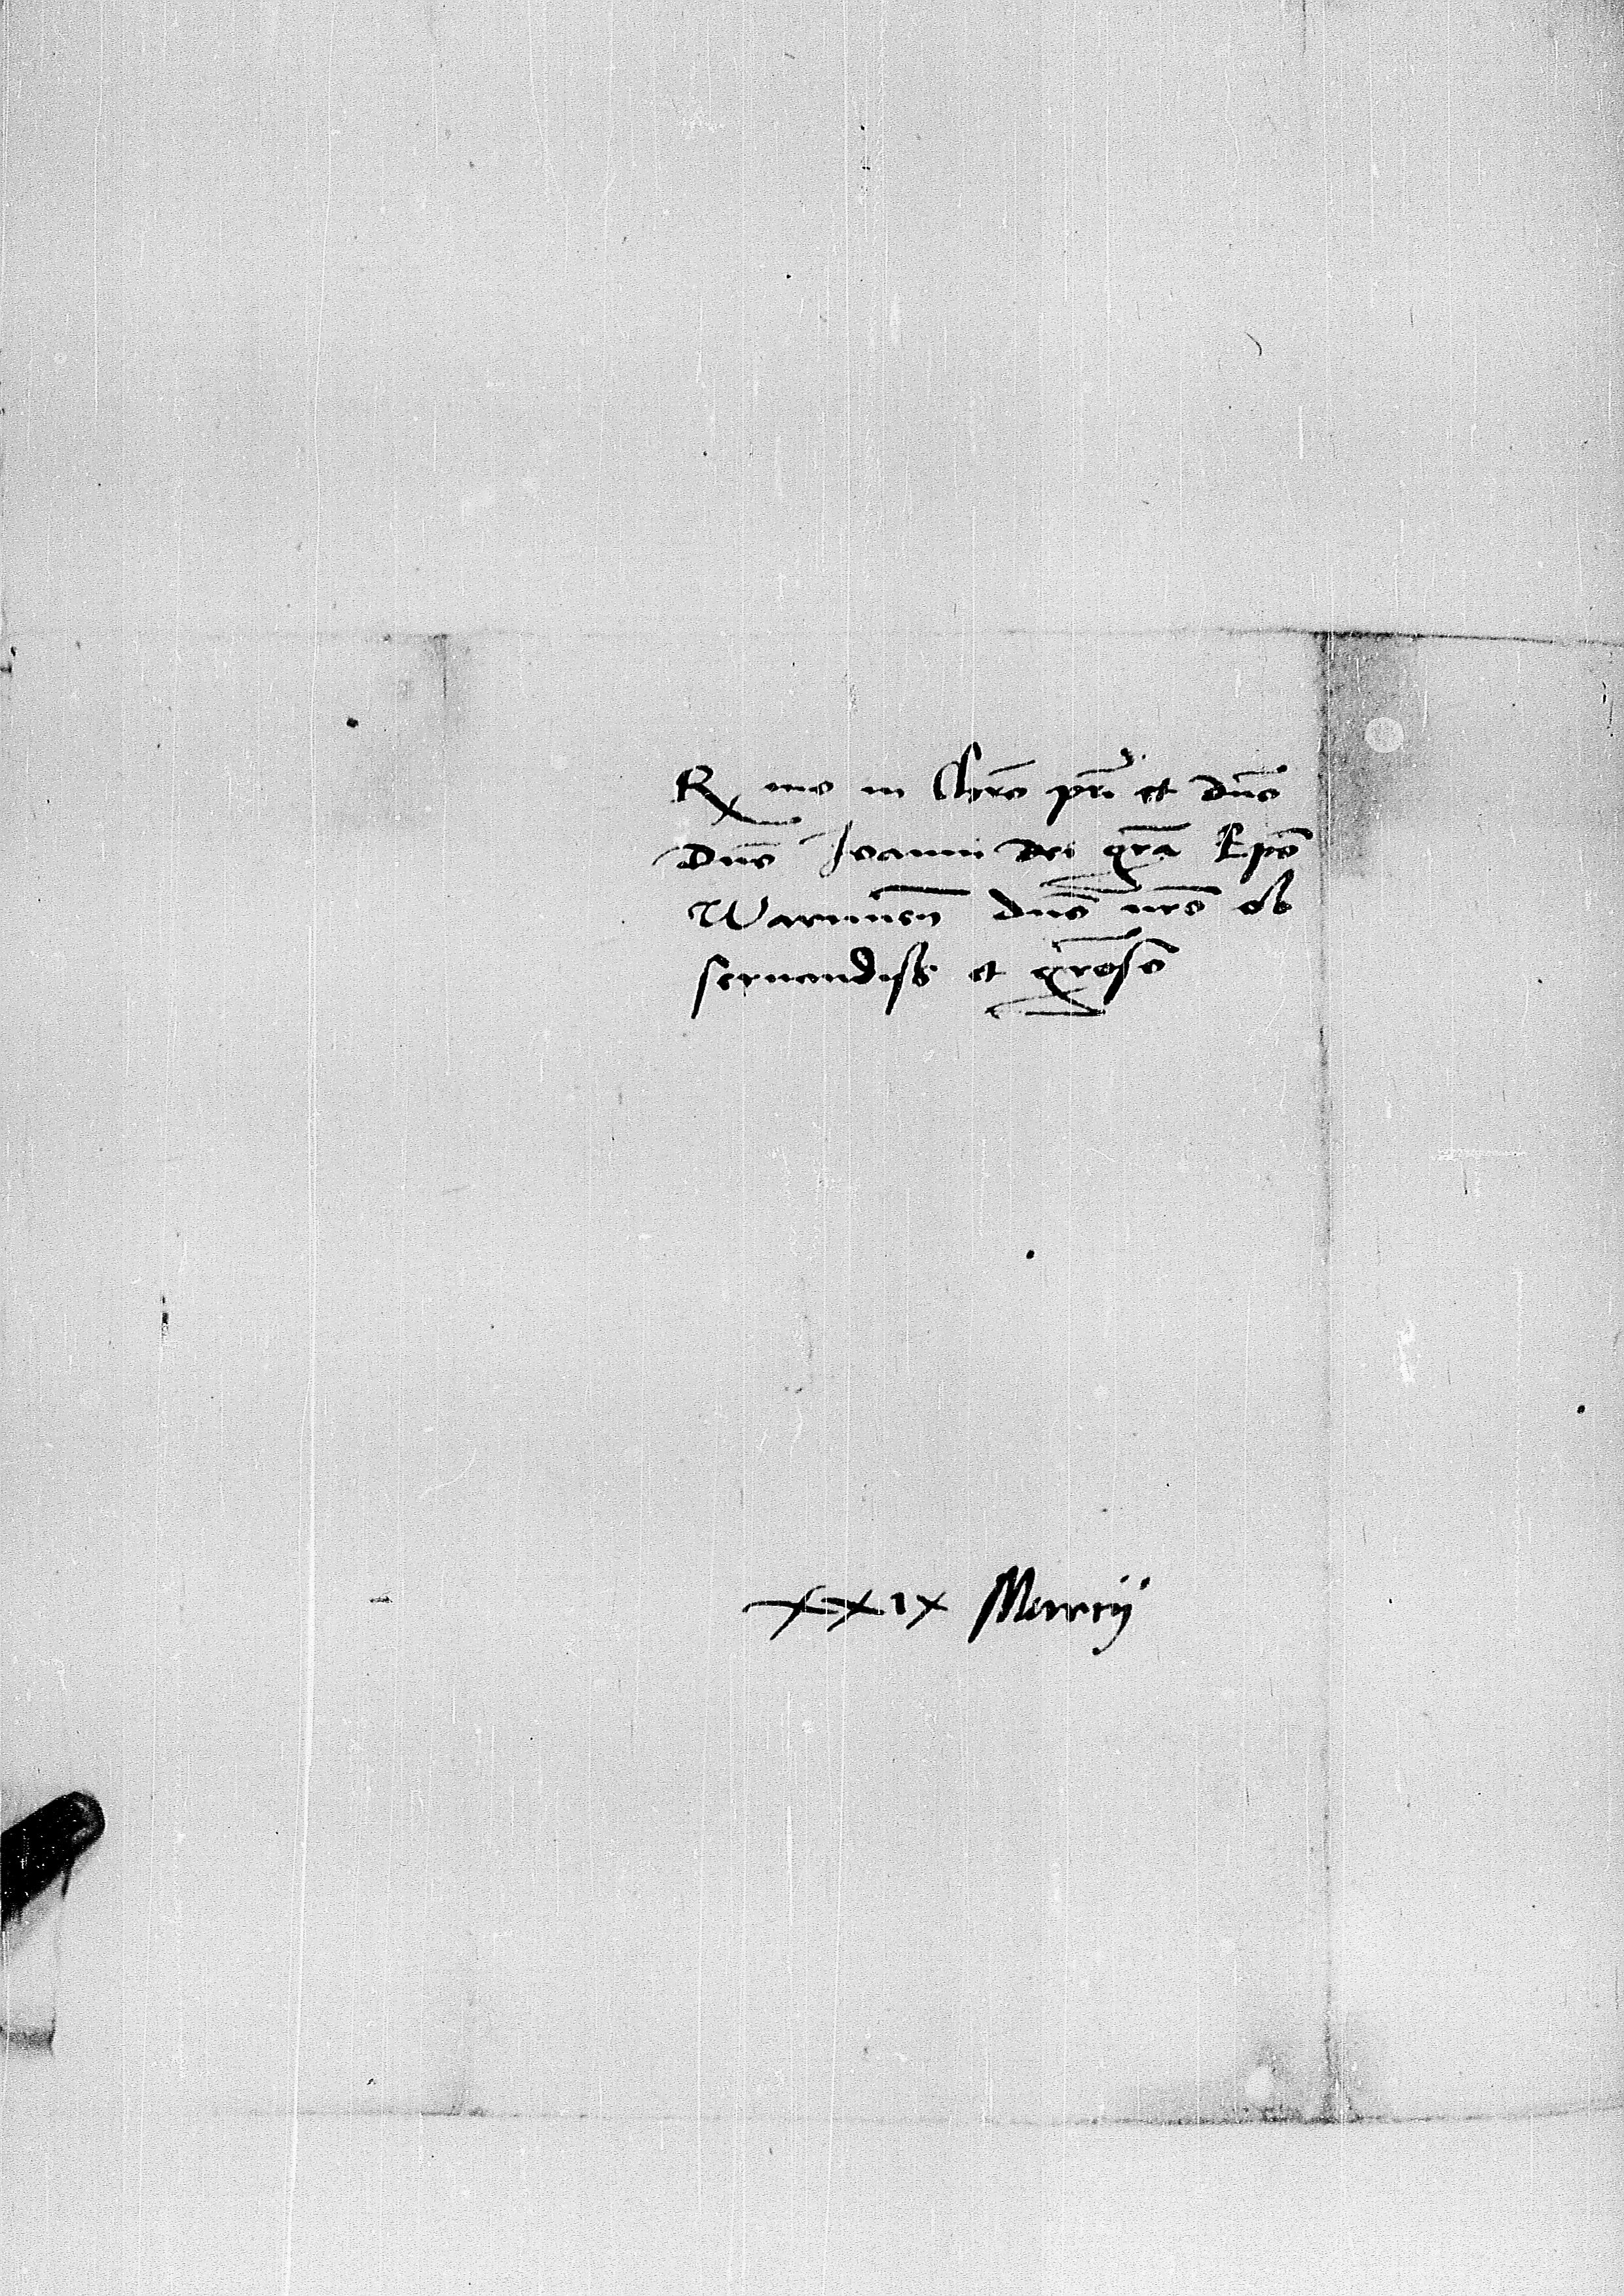 R mo in Chro pri et dno
Dno Joanni dei gra Epo
Warmien dno nro ob
seruandiss et groso
XXIX Marcij